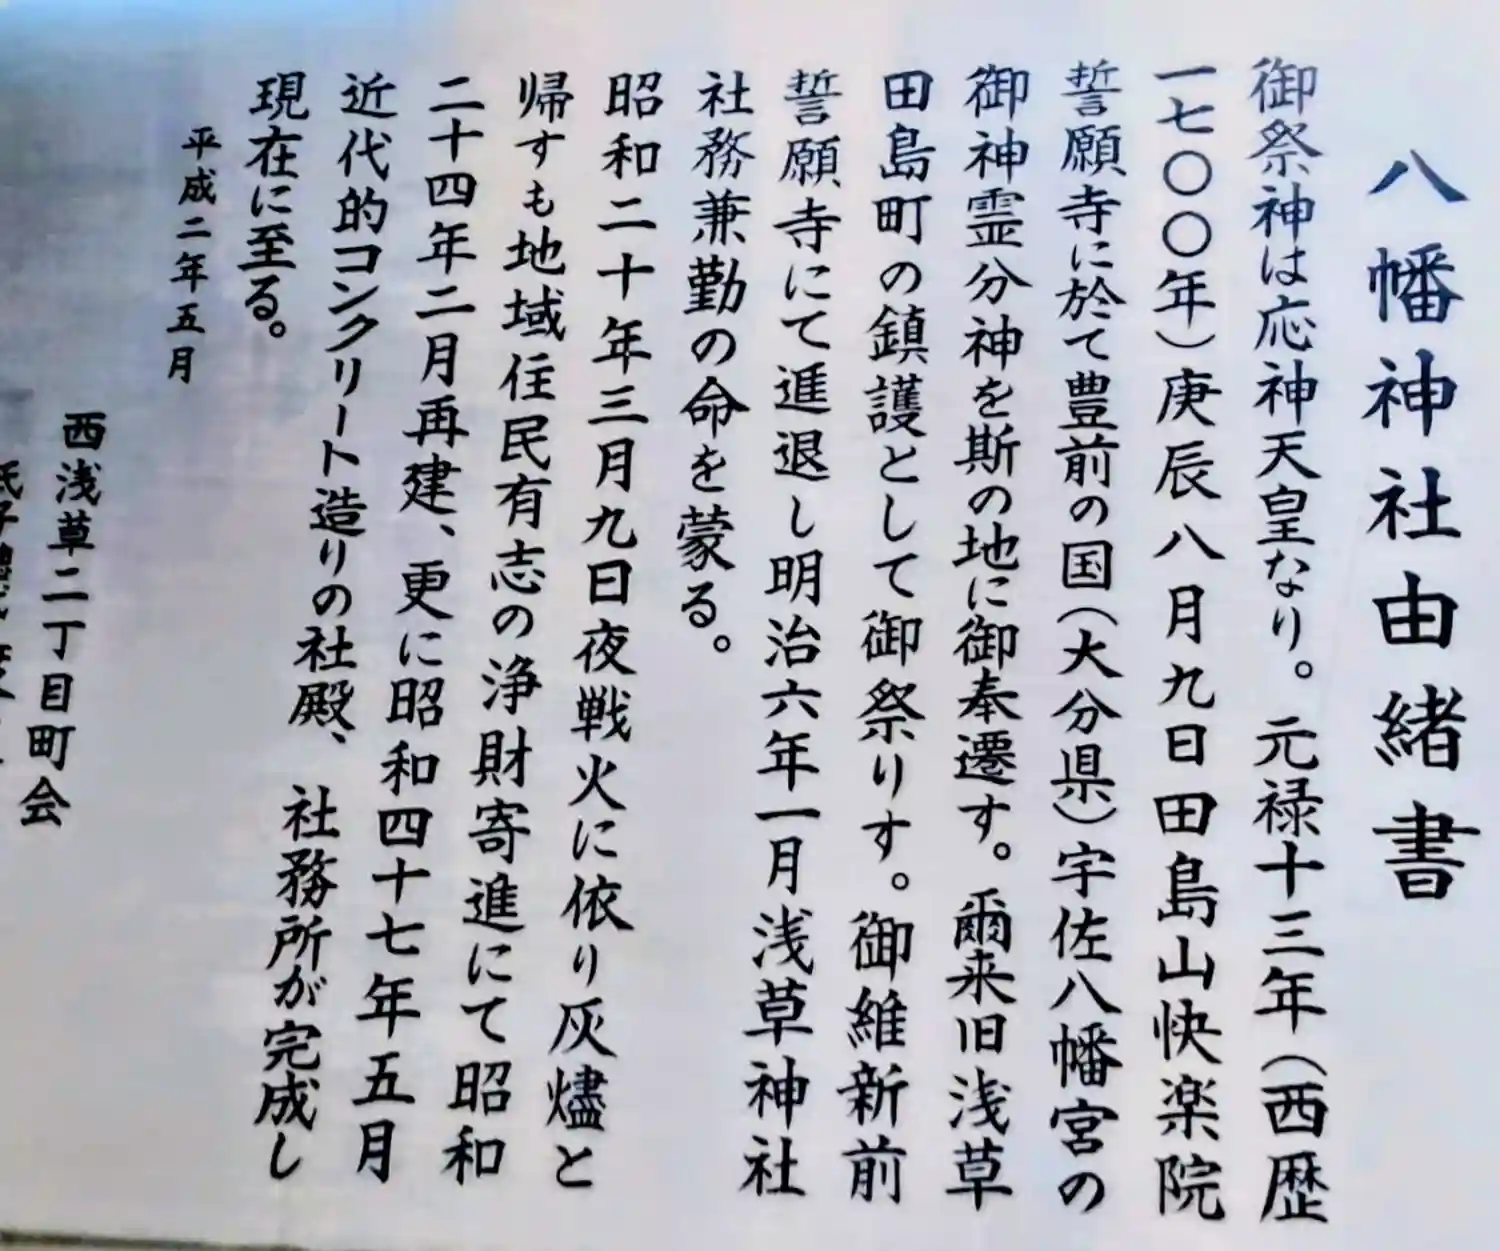 八幡神社由緒書
御祭神は応神天皇なり。元禄十三年(西歴
一七〇〇年)庚辰八月九日田島山快楽院
誓願寺に於て豊前の国(大分県)宇佐八幡宮の
御神霊分神を斯の地に御奉遷す。爾来旧浅草
田島町の鎮護として御祭りす。御維新前
誓願寺にて進退し明治六年一月浅草神社
社務兼勤の命を蒙る。
昭和二十年三月九日夜戦火に依り灰燼と
帰すも地域住民有志の浄財寄進にて昭和
二十四年二月再建、更に昭和四十七年五月
近代的コンクリート造りの社殿、社務所が完成し
現在に至る。
平成二年五月
西浅草二丁目町会
氏子